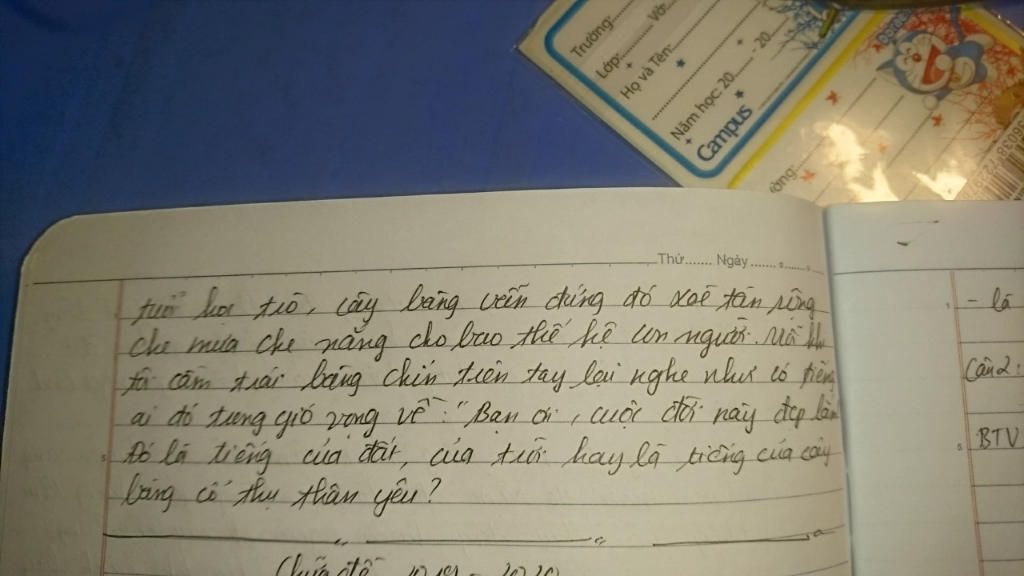 Trường:
Lớp: Vở:
Họ và Tên:
Năm học: 20 - 20
Campus
Thứ Ngày
tuổi học trò, cây bàng vẫn đứng đó xoè tán rộng
che mưa che nắng cho bao thế hệ con người. Mỗi khi
tôi cầm trái bàng chín trên tay lại nghe như có tiếng
ai đó trong gió vọng về: "Bạn ơi, cuộc đời này đẹp lắm
Đó là tiếng của đất, của trời hay là tiếng của cây
bàng cổ thụ thân yêu?
Chữa đề 2019 - 2020
- là
Câu 2:
BTV